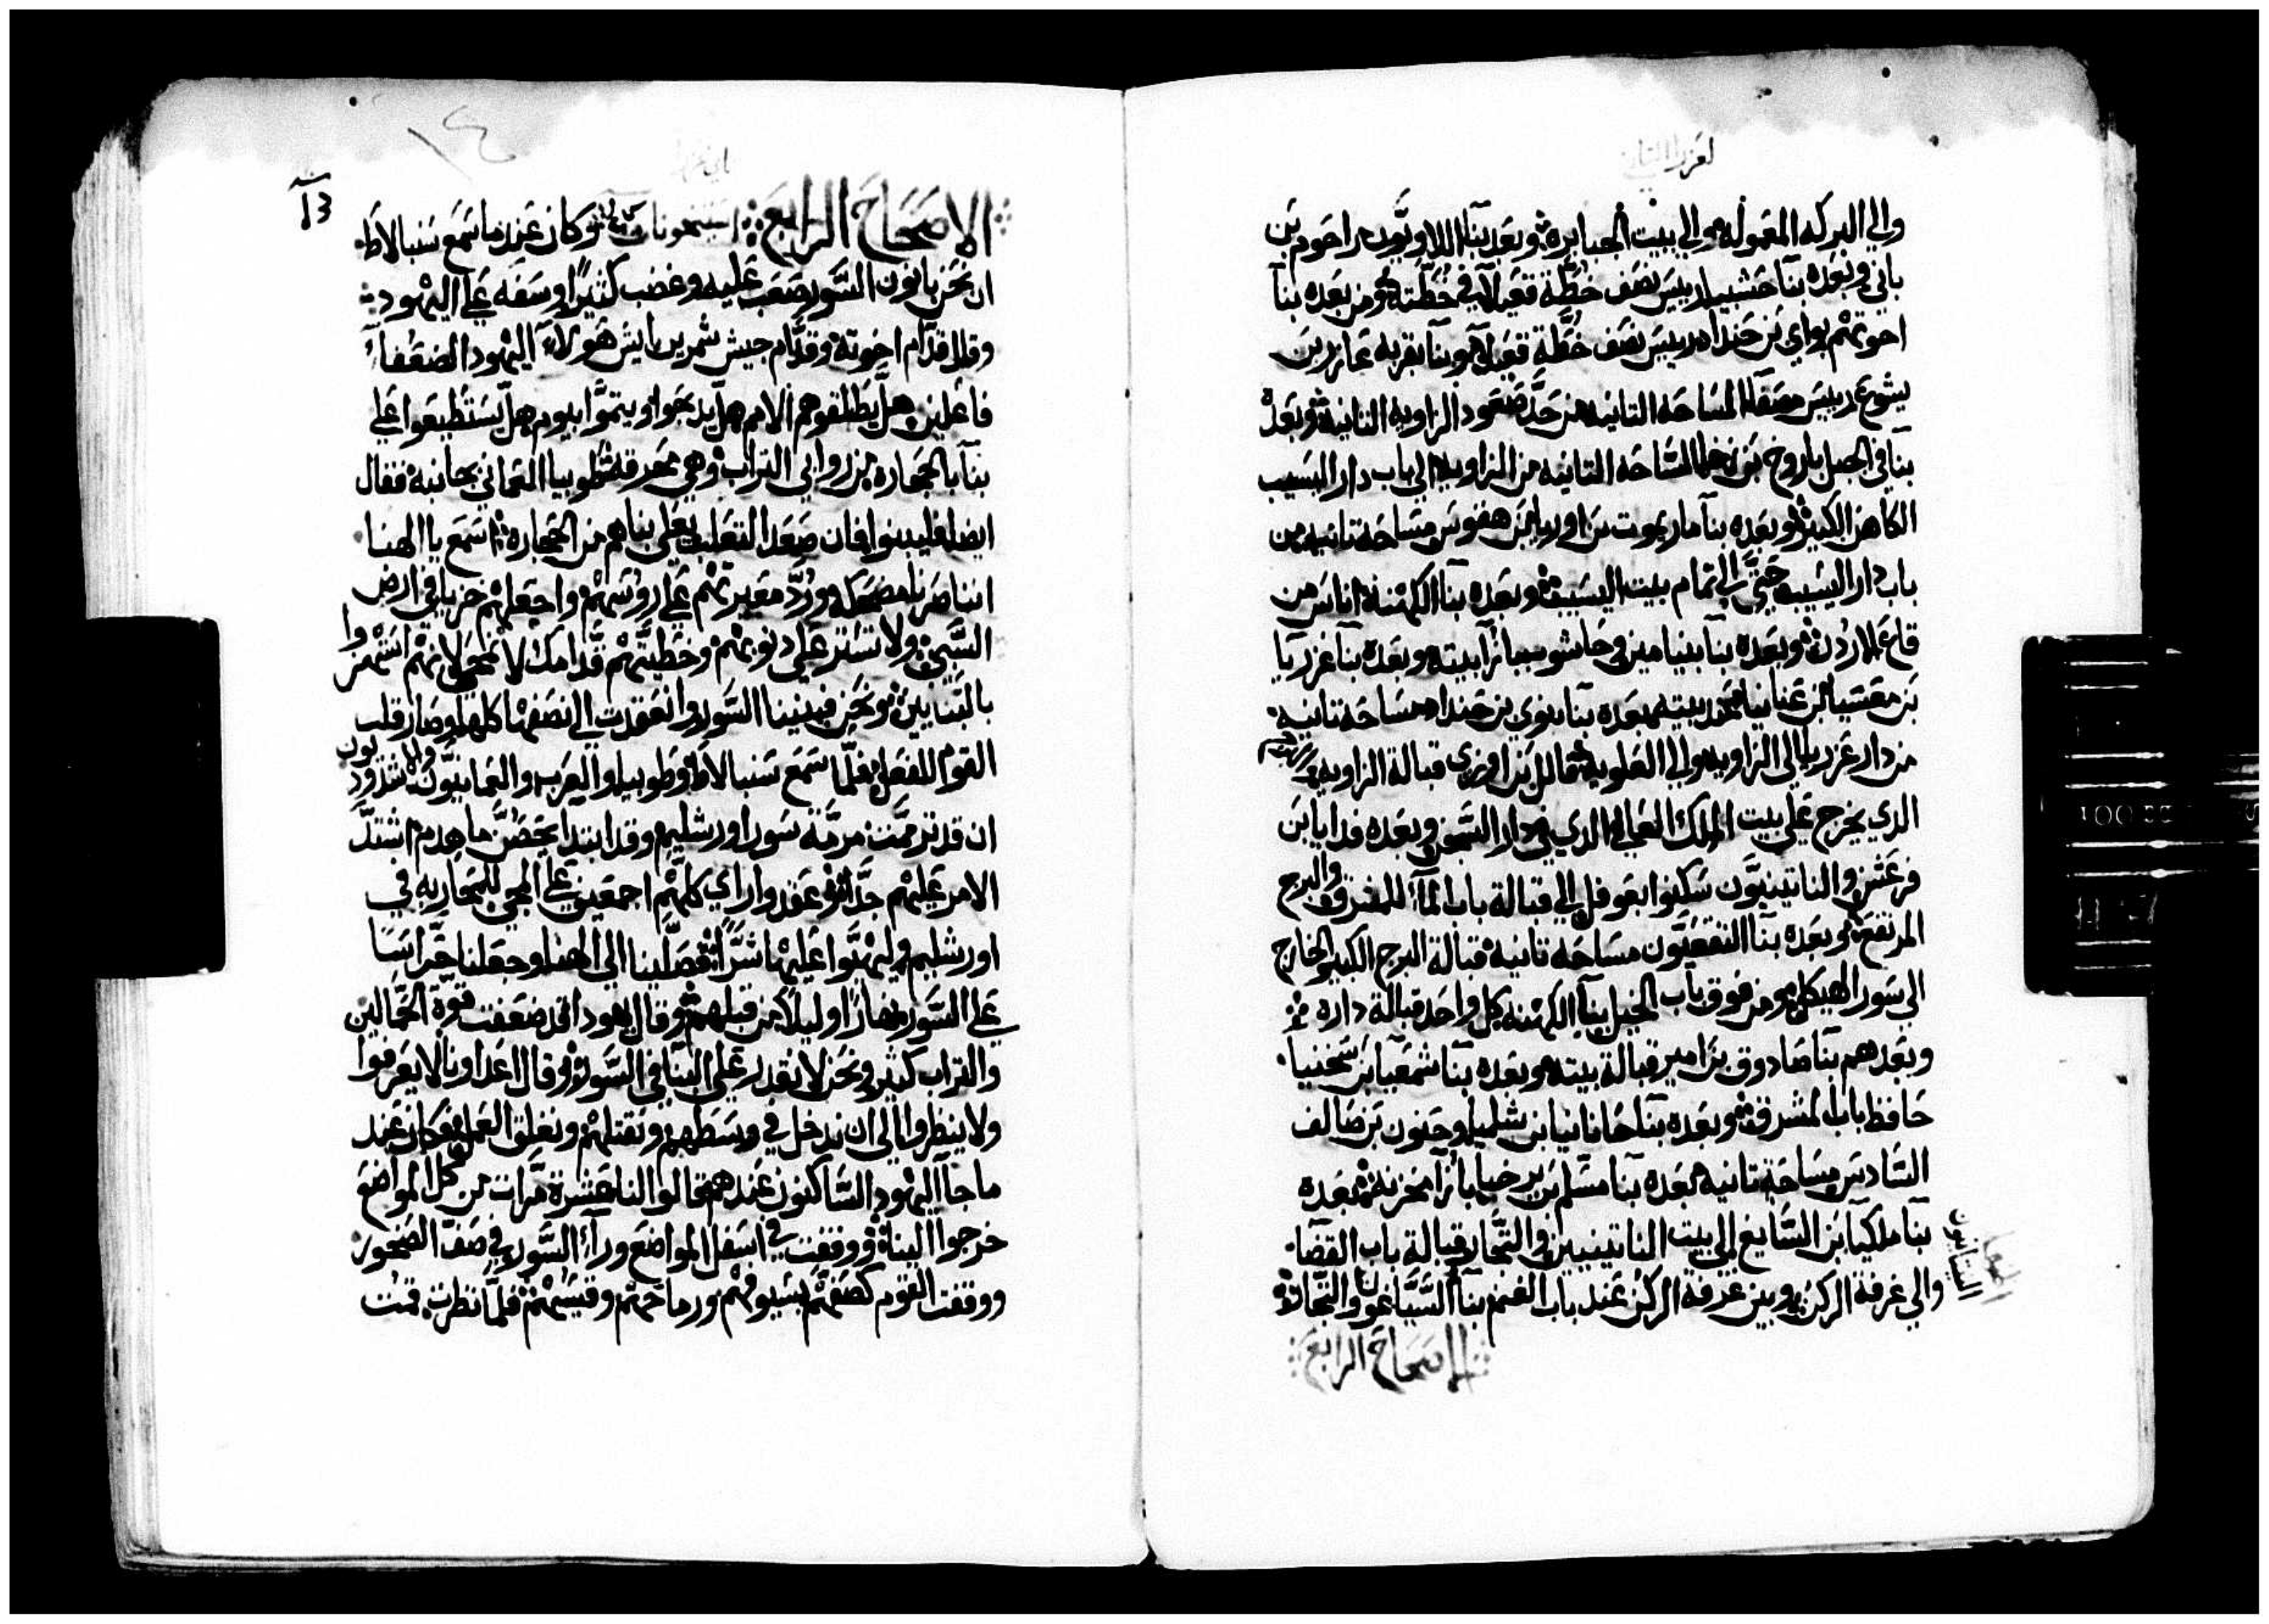 لعزرا الثاني
والي البركه المعموله والي بيت الجبابرة وبعده بنا اللاويون راحوم بن
باني وبعده بنا حشبيا رييس نصف خطة قعيلا في خطته ومن بعده بنا
اخوتهم بواي بن حنداد رييس نصف خطة قعيلا وبنا بقربه عازر بن
يشوع رييس مصفا المساحه التانيه من حد صعود الزاويه التانيه وبعده
بنا في الجبل باروخ بن زخيا المساحه التانيه من الزاويه الي باب دار اليسيب
الكاهن الكبير وبعده بنا ماريموت بن اوريا بن هقوس مساحه تانيه من
باب دار اليسيب حتي الي تمام بيت اليسيب وبعده بنا الكهنه اناس من
قاع الاردن وبعده بنا بنيامين وحاشوب بازا بيته وبعده بنا عزريا
بن معسيا بن عنانيا عند بيته بعده بنا بنوي بن حنداد مساحه تانيه
من دار عزريا الي الزاويه والي العلويه فالال بن اوزي قبالة الزاويه
الذي يخرج علي بيت الملك العالي الذي في دار السجن وبعده فدايا بن
فرعش والناتينيون سكنوا بعوفل الي قبالة باب الما للمشرق والبرج
المرتفع وبعده بنا التقعيون مساحه تانيه قبالة البرج الكبير الخارج
الي سور الهيكل ومن فوق باب الخيل بنا الكهنه كل واحد قبالة داره
وبعدهم بنا صادوق بن امير قبالة بيته وبعده بنا شمعيا بن سخنيا
حافظ باب المشرق وبعده بنا حانانيا بن شلميا وحنون بن صالف
السادس مساحة تانيه بعده بنا مسلم بن برخيا بازا مخزنه بعده
بنا ملكيا بن الصايغ الي بيت الناتينيين والتجار قبالة باب القضا
والي غرفة الركن وبين غرفة الركن عند باب الغنم بنا الصياغون والتجار
الاصحاح الرابع
13
١٤
الاصحاح الرابع وكان عندما سمع سنبالاط
ان نحن بانون السور صعب عليه وغضب كثيرا وسفه علي اليهود
وقال قدام اخوته وقدام جيش شمرين ايش هولاء اليهود الضعفا
فاعلين هل يطلقوهم الامم هل يدبحوا ويتموا بيوم هل يستطيعوا علي
بنا بالحجاره من روابي التراب وهي محرقه طوبيا العماني بجانبه فقال
ايضا فليبنوا فان صعد التعلب يعلي بناهم من الحجاره اسمع يا الهنا
اننا صرنا مضحكه ورد معيرتهم علي روسهم واجعلهم خربا في ارض
السبي ولا تستر علي دنوبهم وخطيتهم قدامك لا تمحي لانهم استهزوا
بالبنايين ونحن فبنينا السور وانعقدت الي نصفها كلها وصار قلب
القوم للفعل فلما سمع سنبالاط وطوبيا والعرب والعمانيون والاشدوديون
ان قد ترممت مرمة سور اورشليم وقد ابتدا يحصن ما هدم اشتد
الامر عليهم جدا وعقدوا راي كلهم اجمعين علي المجي للمحاربه في
اورشليم وليهتوا عليها شرا فصلينا الي الهنا وجعلنا حراسا
علي السور نهارا وليلا من قبلهم وقال يهودا قد ضعفت قوة الحمالين
والتراب كثير ونحن لا نقدر علي البنا في السور وقال اعداونا لا يعرفوا
ولا ينظروا الي ان ندخل في وسطهم ونقتلهم ونغلق العمل وكان عند
ما جا اليهود الساكنون عندهم قالوا لنا عشرة مرات من كل المواضع
خرجوا البناة ووقفت في اسفل المواضع ورآ السور في صف الصخور
ووقفت القوم كصفهم بسيوفهم ورماحهم وقسيهم فلما نظرت قمت